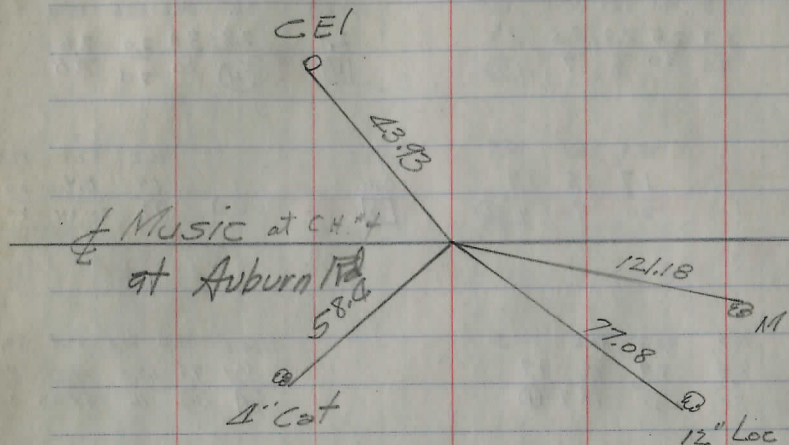 CEI
43.93
℄ Music at
at Auburn Rd
121.18
58.
77.08
M
4" Cat
12" Loc